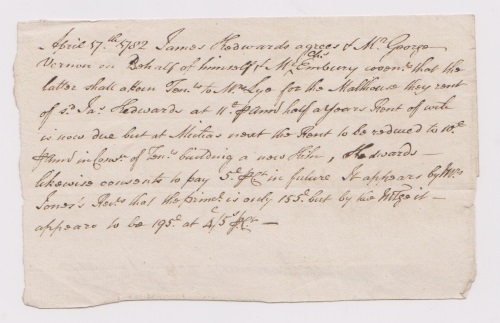 April 17.th 1782 James Hedwards agrees & Mr. George
Vernon on Behalf of himself & Mr. Embury that the
latter shall atorn Ten.ts to Mr. Lye for the Malthouse they rent
of s.d Ja.s Hedwards at 11£ ⅌ Ann half a years Rent of wch.
is now due but at Mic̃has next the Rent to be reduced to 10.£
⅌ Ann in Cons.n of Ten.ts building a new Kiln, Hedwards —
likewise consents to pay 5. ⅌ C.t in future It appears by Mrs.
Jones's Rec.ts that the princ.l is only 155.£ but by the Mtge it —
appears to be 195£ at 4,5.s ⅌ C.t —